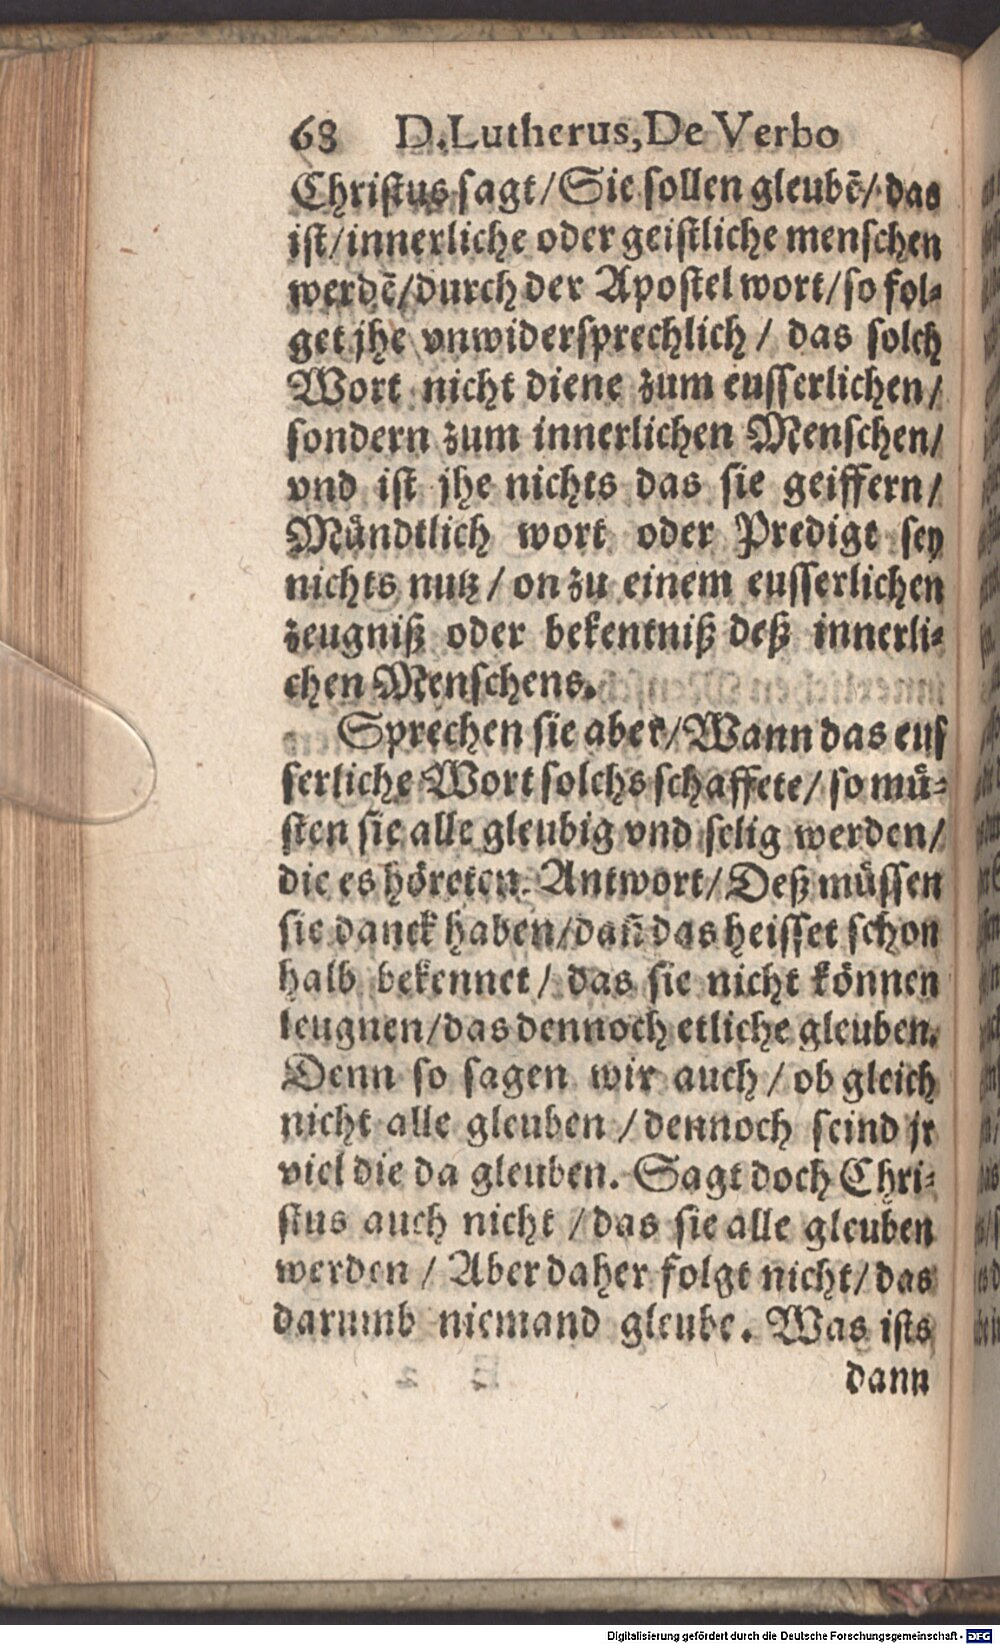 68 D. Lutherus, De Verbo
Christus sagt/Sie sollen gleubẽ/das
ist/innerliche oder geistliche menschen
werdẽ/durch der Apostel wort/so fol-
get jhe vnwidersprechlich / das solch
Wort nicht diene zum eusserlichen/
sondern zum innerlichen Menschen/
vnd ist jhe nichts das sie geiffern/
Mündtlich wort oder Predigt sey
nichts nutz / on zu einem eusserlichen
zeugniß oder bekentniß deß innerli-
chen Menschens.
Sprechen sie aber/Wann das eus
serliche Wort solchs schaffete/ so mü-
sten sie alle gleubig vnd selig werden/
die es höreten. Antwort/Deß müssen
sie danck haben/dañ das heisset schon
halb bekennet / das sie nicht können
leugnen/das dennoch etliche gleuben.
Denn so sagen wir auch / ob gleich
nicht alle gleuben / dennoch seind jr
viel die da gleuben. Sagt doch Chri-
stus auch nicht / das sie alle gleuben
werden / Aber daher folgt nicht/das
darumb niemand gleube. Was ists
dann
Digitalisierung gefördert durch die Deutsche Forschungsgemeinschaft - DFG